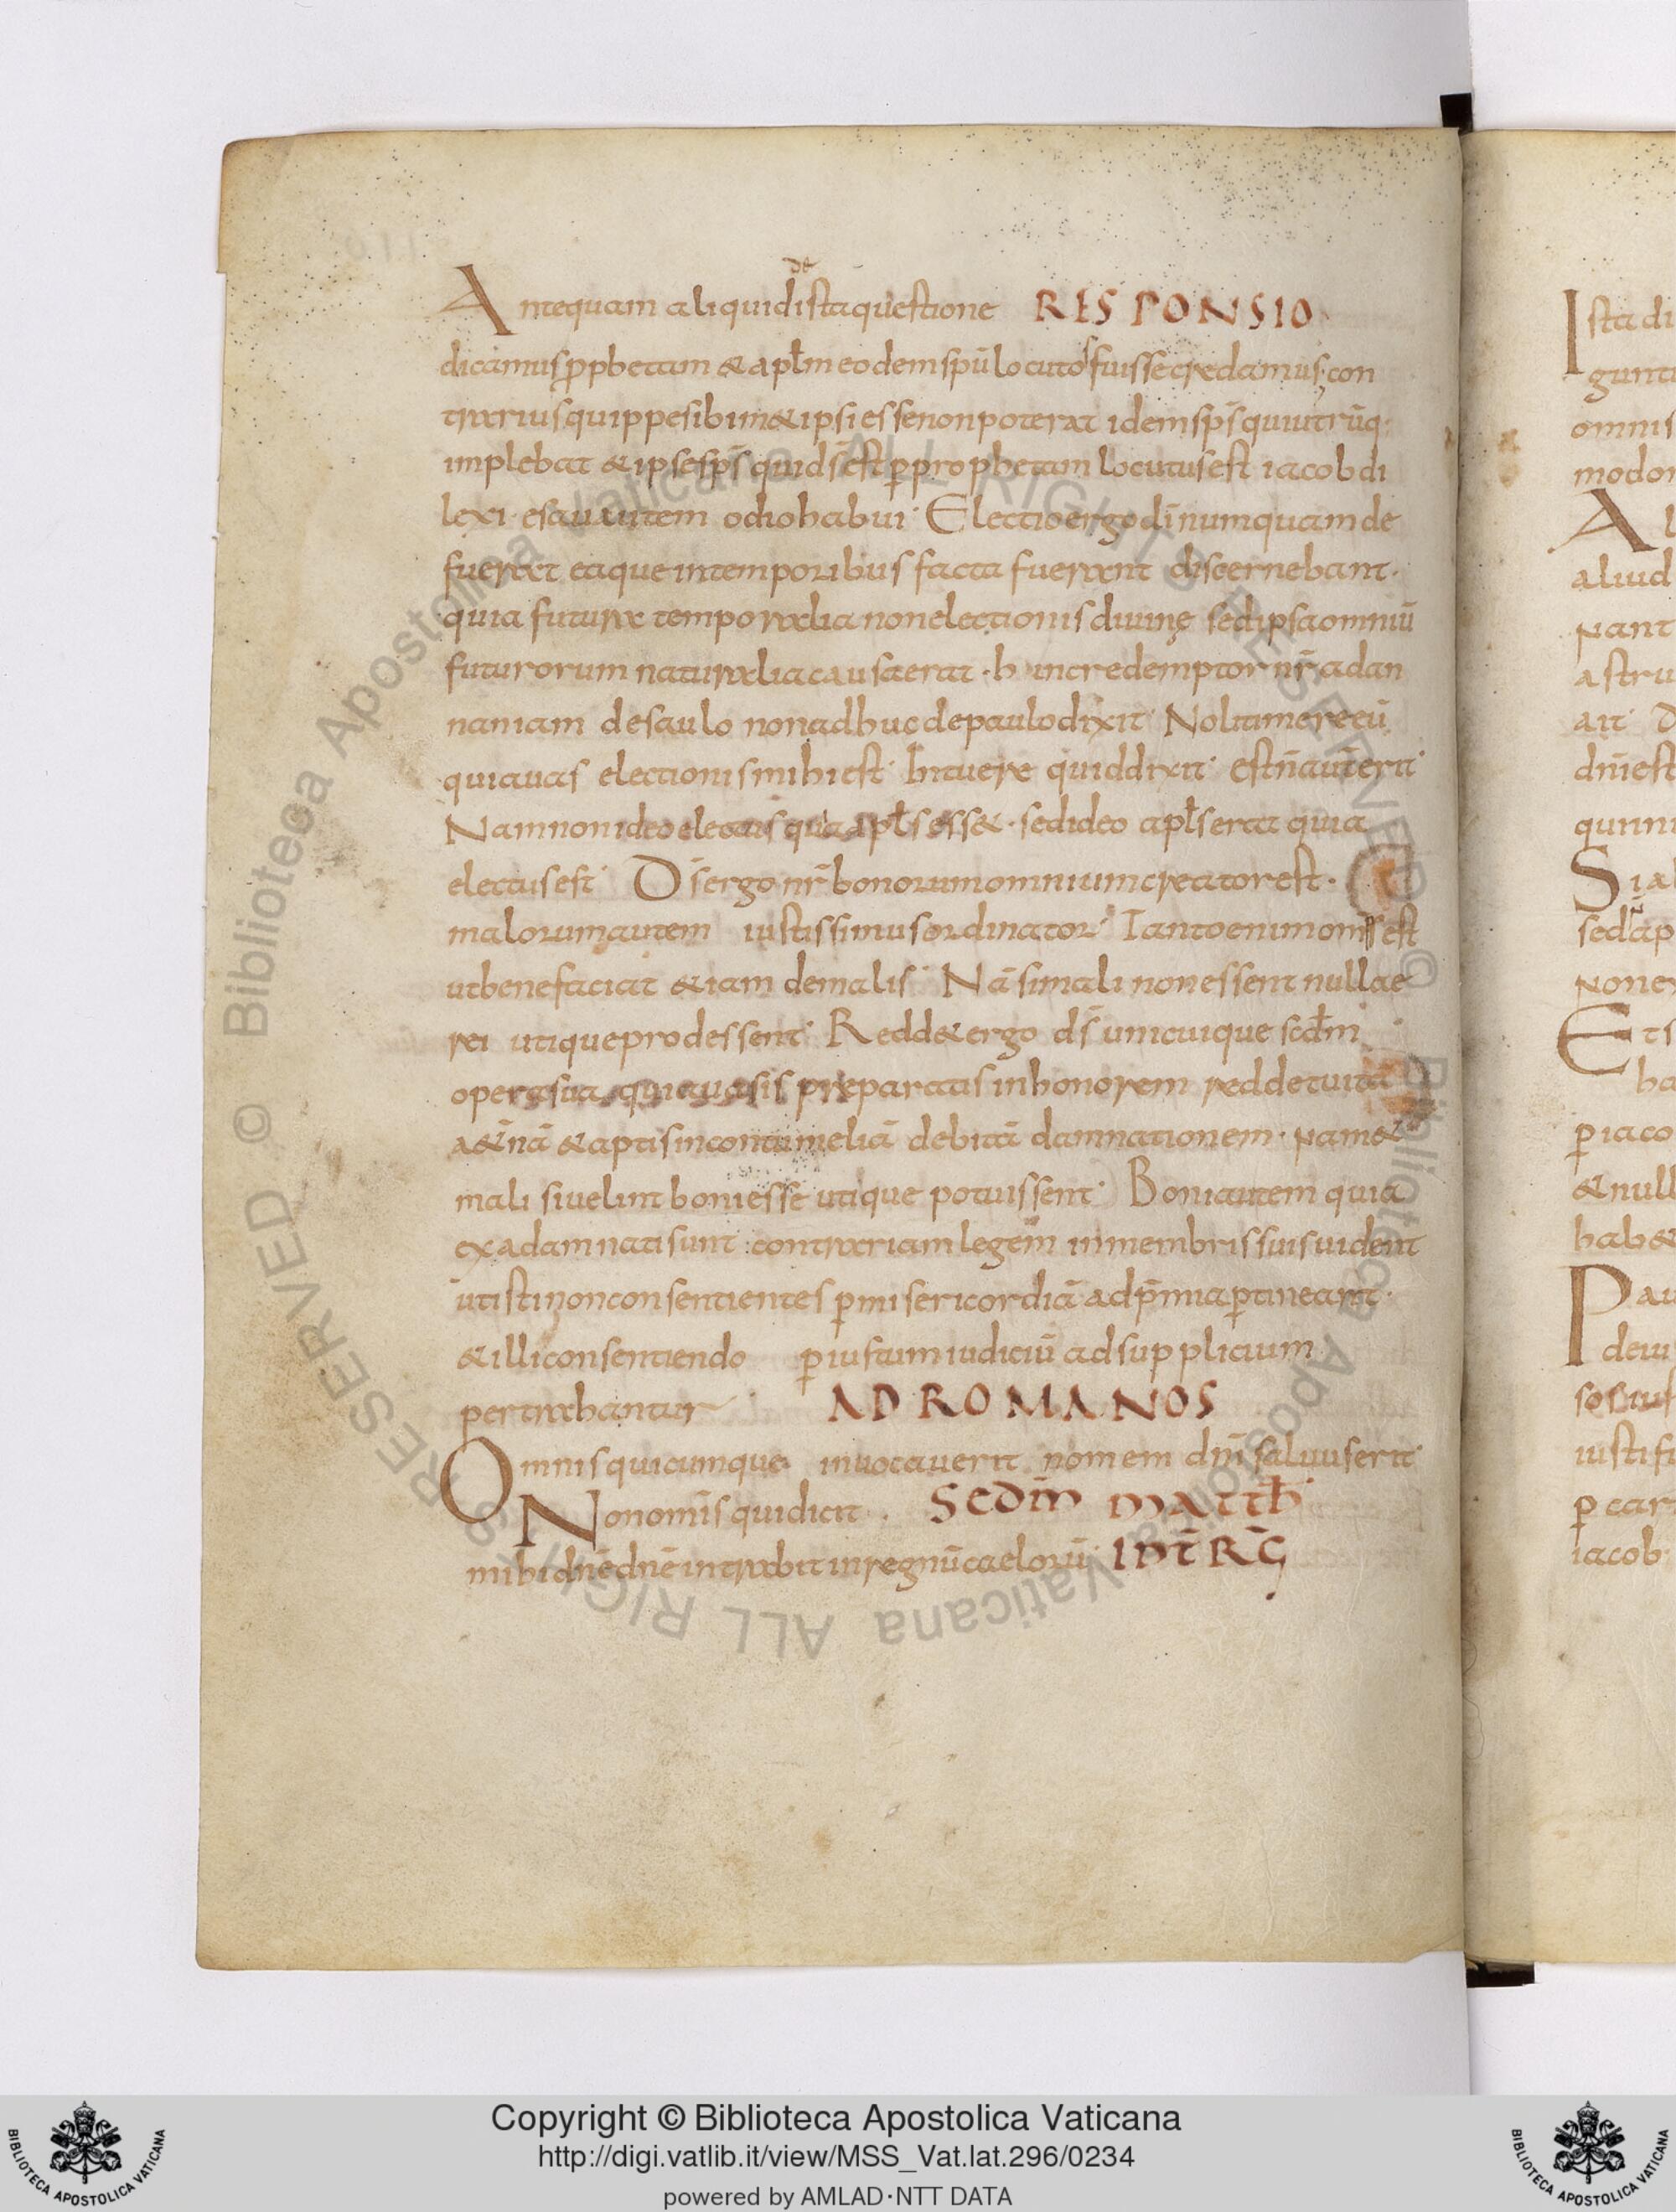 Antequam aliquid de ista questione RESPONSIO
dicamus ꝓphetam & apl̄m eodem spū locutos fuisse credamus; con
trarius quippe sibim& ipsi esse non poterat idem sps̄ qui utrūq;
implebat & ipse sps̄ qui ds̄ est ꝑ prophetam locutus est iacob di
lexi· esau autem odio habui· Electio ergo dī numquam de
fuerat eaque in temporibus facta fuerant discernebant·
quia futura temporalia non electionis diuinę sed ipsa omniū
futurorum naturalia causa erat· hinc redemptor nr̄ ad an
naniam de saulo non adhuc de paulo dixit· Noli timere eū
quia uas electionis mihi est· Intuere quid dixit· est n̄ aut̄ erit·
Nam non ideo electus quia apl̄s ess&· sed ideo apl̄s erat quia
electus est· Ds̄ ergo nr̄ bonorum omnium creator est·
malorum autem iustissimus ordinator· Tanto enim omps̄ est
ut bene faciat &iam de malis· Nā si mali non essent nullae
rei utique prodessent· Redd& ergo ds̄ unicuique scdm̄
opera sua quia uasis preparatis in honorem reddet uitā
a&nā & aptis in contumeliā debitā damnationem· nam &
mali si uelint boni esse utique potuissent· Boni autem quia
ex adam nati sunt contrariam legem in membris suis uident
ut isti non consentientes ꝑ misericordiā ad p̄mia ꝑtineant·
& illi consentiendo ꝑ iustum iudiciū ad supplicium
pertrahantur AD ROMANOS
Omnis quicumque inuocauerit nomen dn̄i saluus erit·
Non omīs qui dicit· SCDM̄ MATTH̄
mihi dn̄e dn̄e intrabit in regnū caelorū· INT̄RḠ
Copyright © Biblioteca Apostolica Vaticana
http://digi.vatlib.it/view/MSS_Vat.lat.296/0234
powered by AMLAD·NTT DATA
BIBLIOTECA APOSTOLICA VATICANA
BIBLIOTECA APOSTOLICA VATICANA